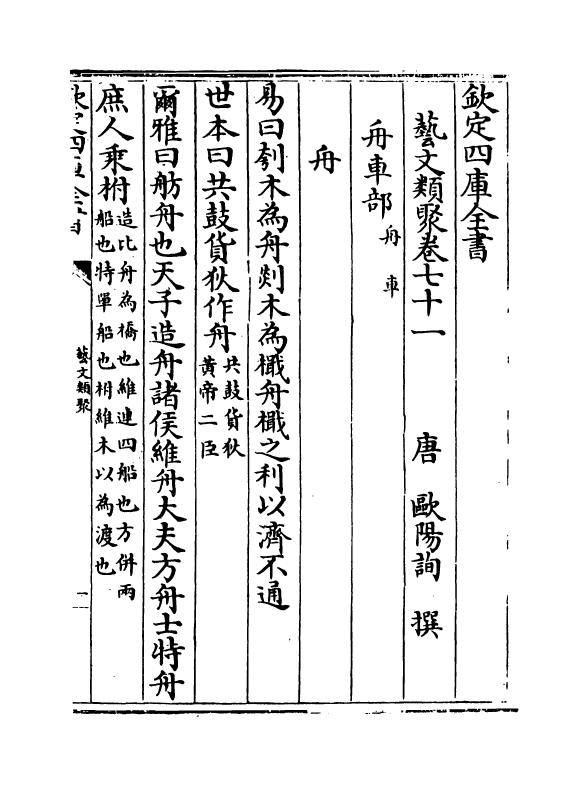 欽定四庫全書
藝文類聚卷七十一 唐 歐陽詢 撰
舟車部 舟 車
舟
易曰刳木為舟剡木為檝舟檝之利以濟不通
世本曰共鼓貨狄作舟 共鼓貨狄黃帝二臣
爾雅曰舫舟也天子造舟諸侯維舟大夫方舟士特舟
庶人乘柎 造比舟為橋也維連四船也方併兩船也特單船也柎維木以為渡也
藝文類聚
一